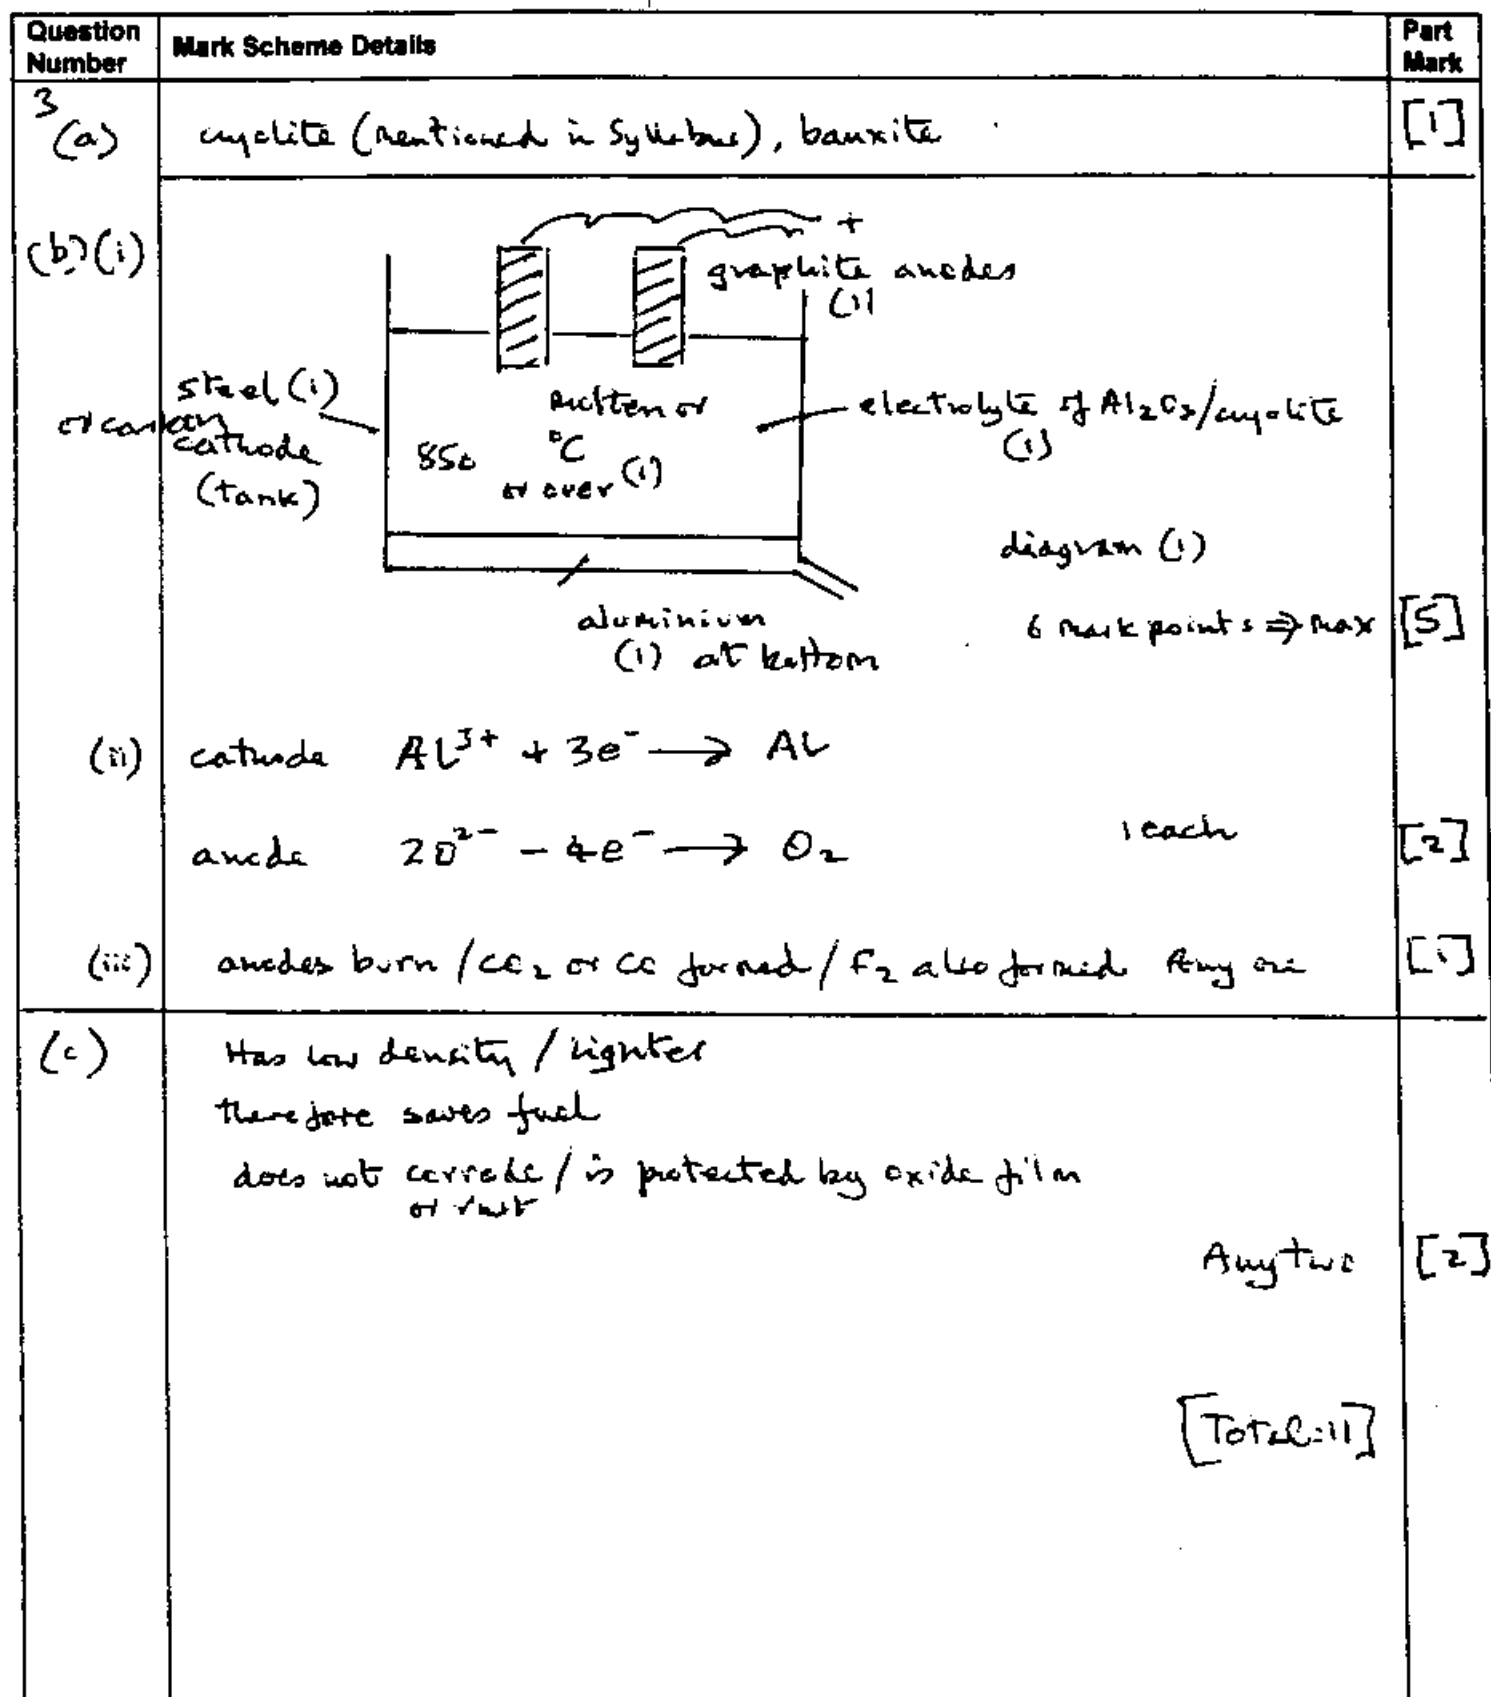 Question Number
Mark Scheme Details
Part Mark
3
(a)
cryolite (mentioned in Syllabus), bauxite
[1]
(b)(i)
+
graphite anodes
(1)
steel (1)
or carbon
cathode
(tank)
molten or
850 °C
or over (1)
electrolyte of Al2O3/cryolite
(1)
diagram (1)
aluminium
(1) at bottom
6 mark points ⇒ max [5]
(ii) cathode Al³⁺ + 3e⁻ → Al
anode 2O²⁻ - 4e⁻ → O₂
1 each [2]
(iii) anodes burn / CO₂ or CO formed / F₂ also formed Any one [1]
(c) Has low density / lighter
therefore saves fuel
does not corrode / is protected by oxide film
or rust
Any two [2]
[Total=11]